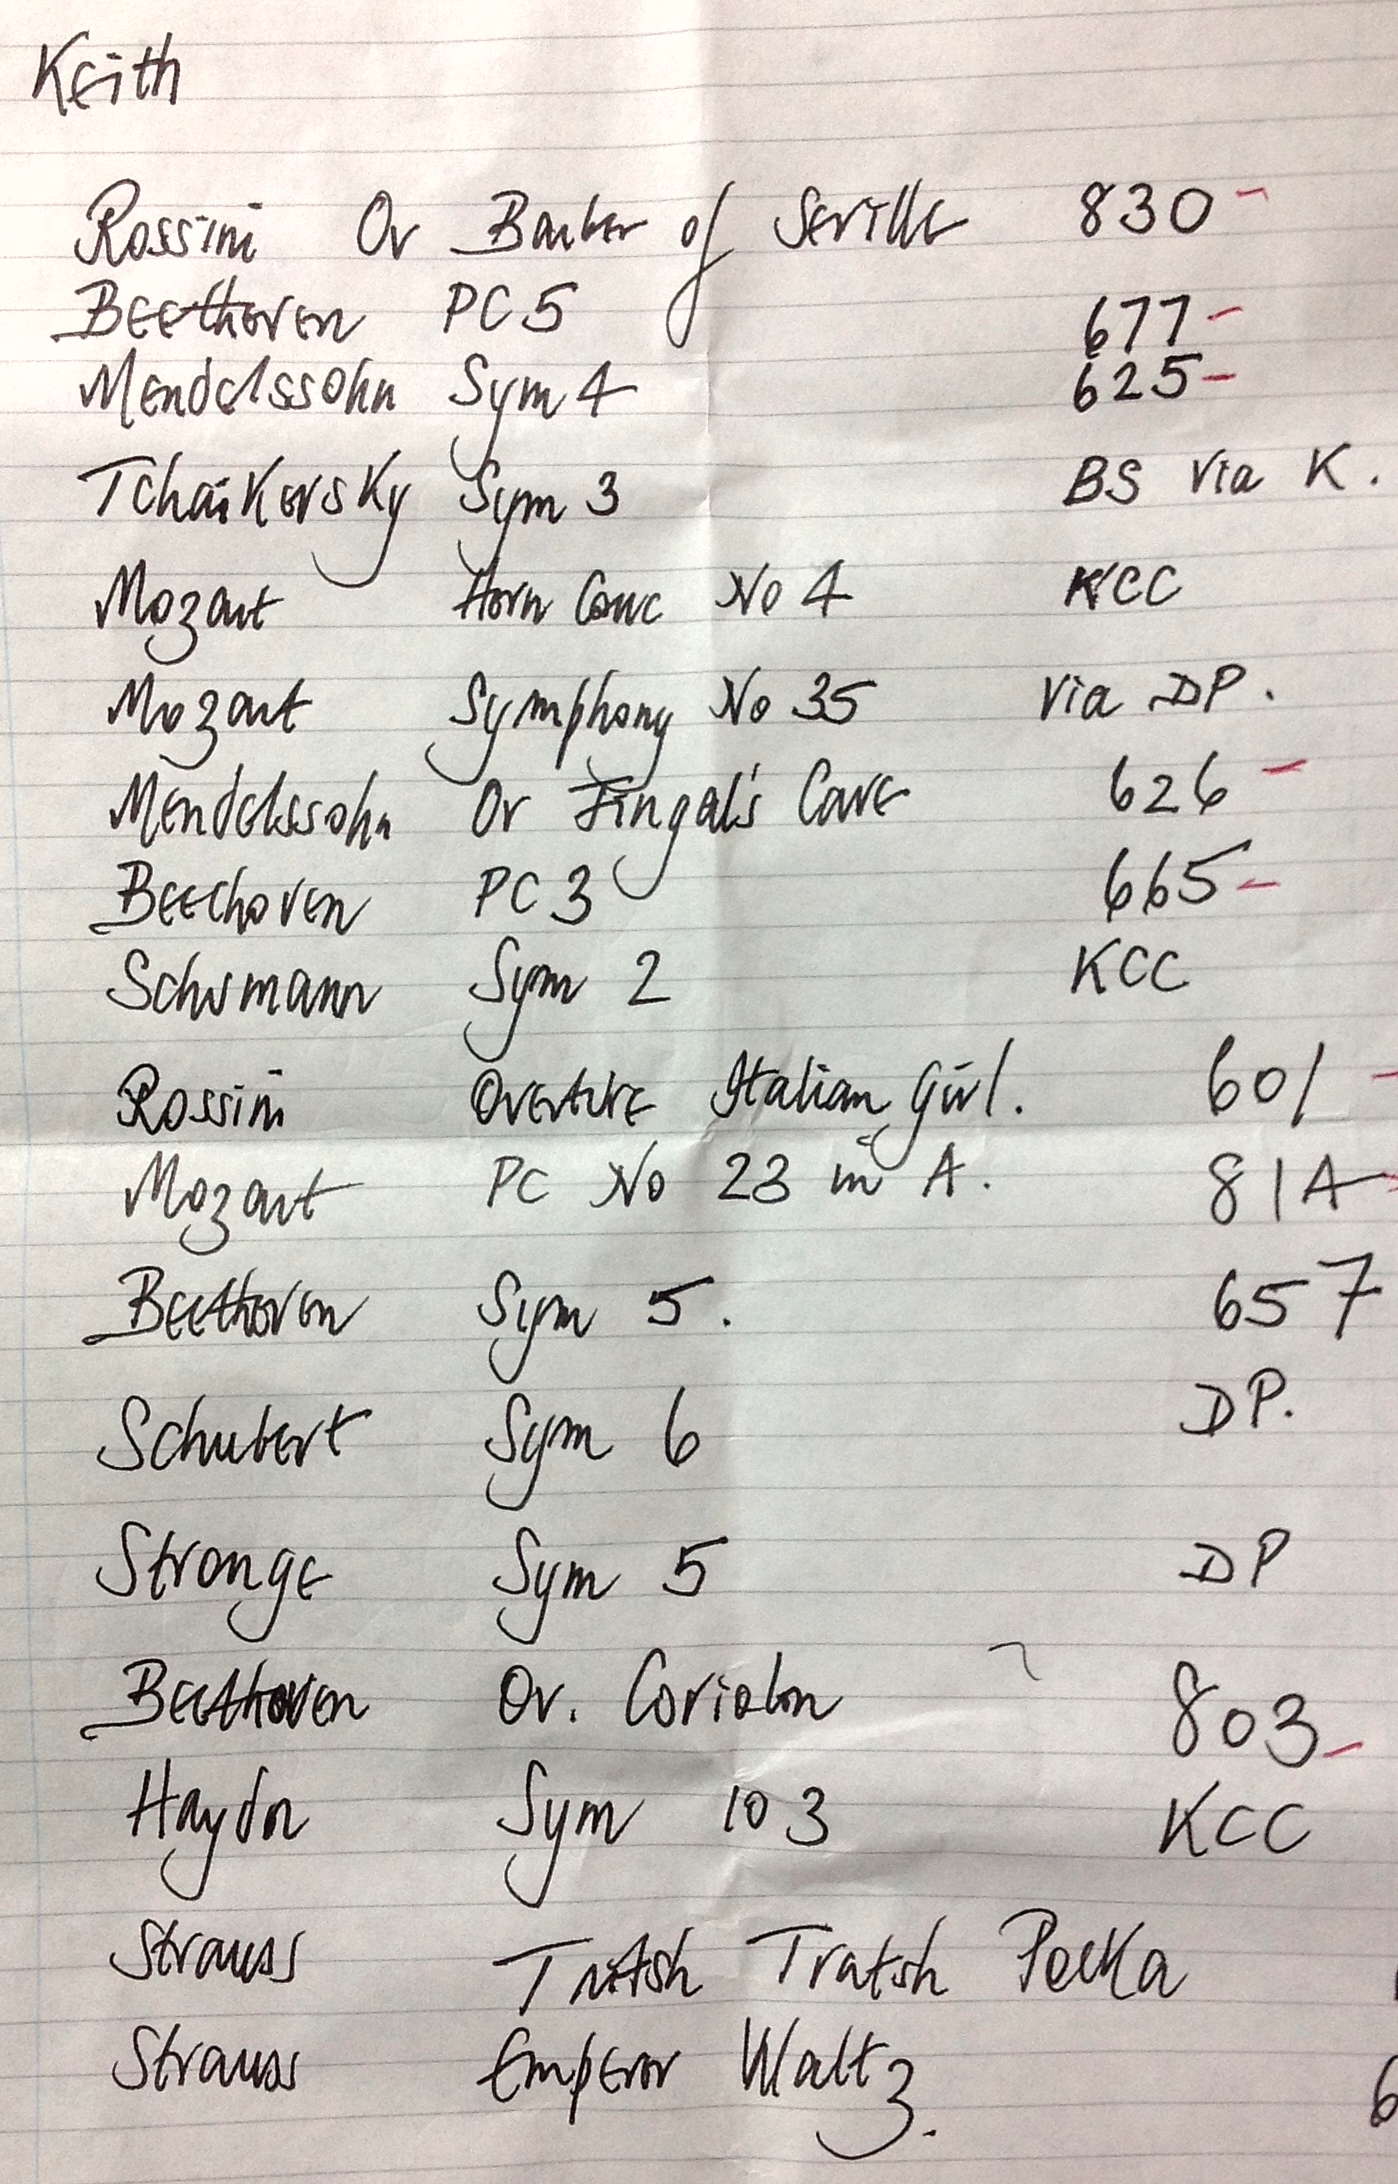 Keith
Rossini Ov Barber of Seville 830 -
Beethoven PC 5 677 -
Mendelssohn Sym 4 625 -
Tchaikovsky Sym 3 BS Via K.
Mozart Horn Conc No 4 KCC
Mozart Symphony No 35 Via DP.
Mendelssohn Ov Fingal's Cave 626 -
Beethoven PC 3 665 -
Schumann Sym 2 KCC
Rossini Overture Italian Girl. 601 -
Mozart PC No 23 in A. 814 -
Beethoven Sym 5. 657
Schubert Sym 6 DP.
Stronge Sym 5 DP
Beethoven Ov. Coriolan 803 -
Haydn Sym 103 KCC
Strauss Tritsh Tratsh Polka
Strauss Emperor Waltz. 6